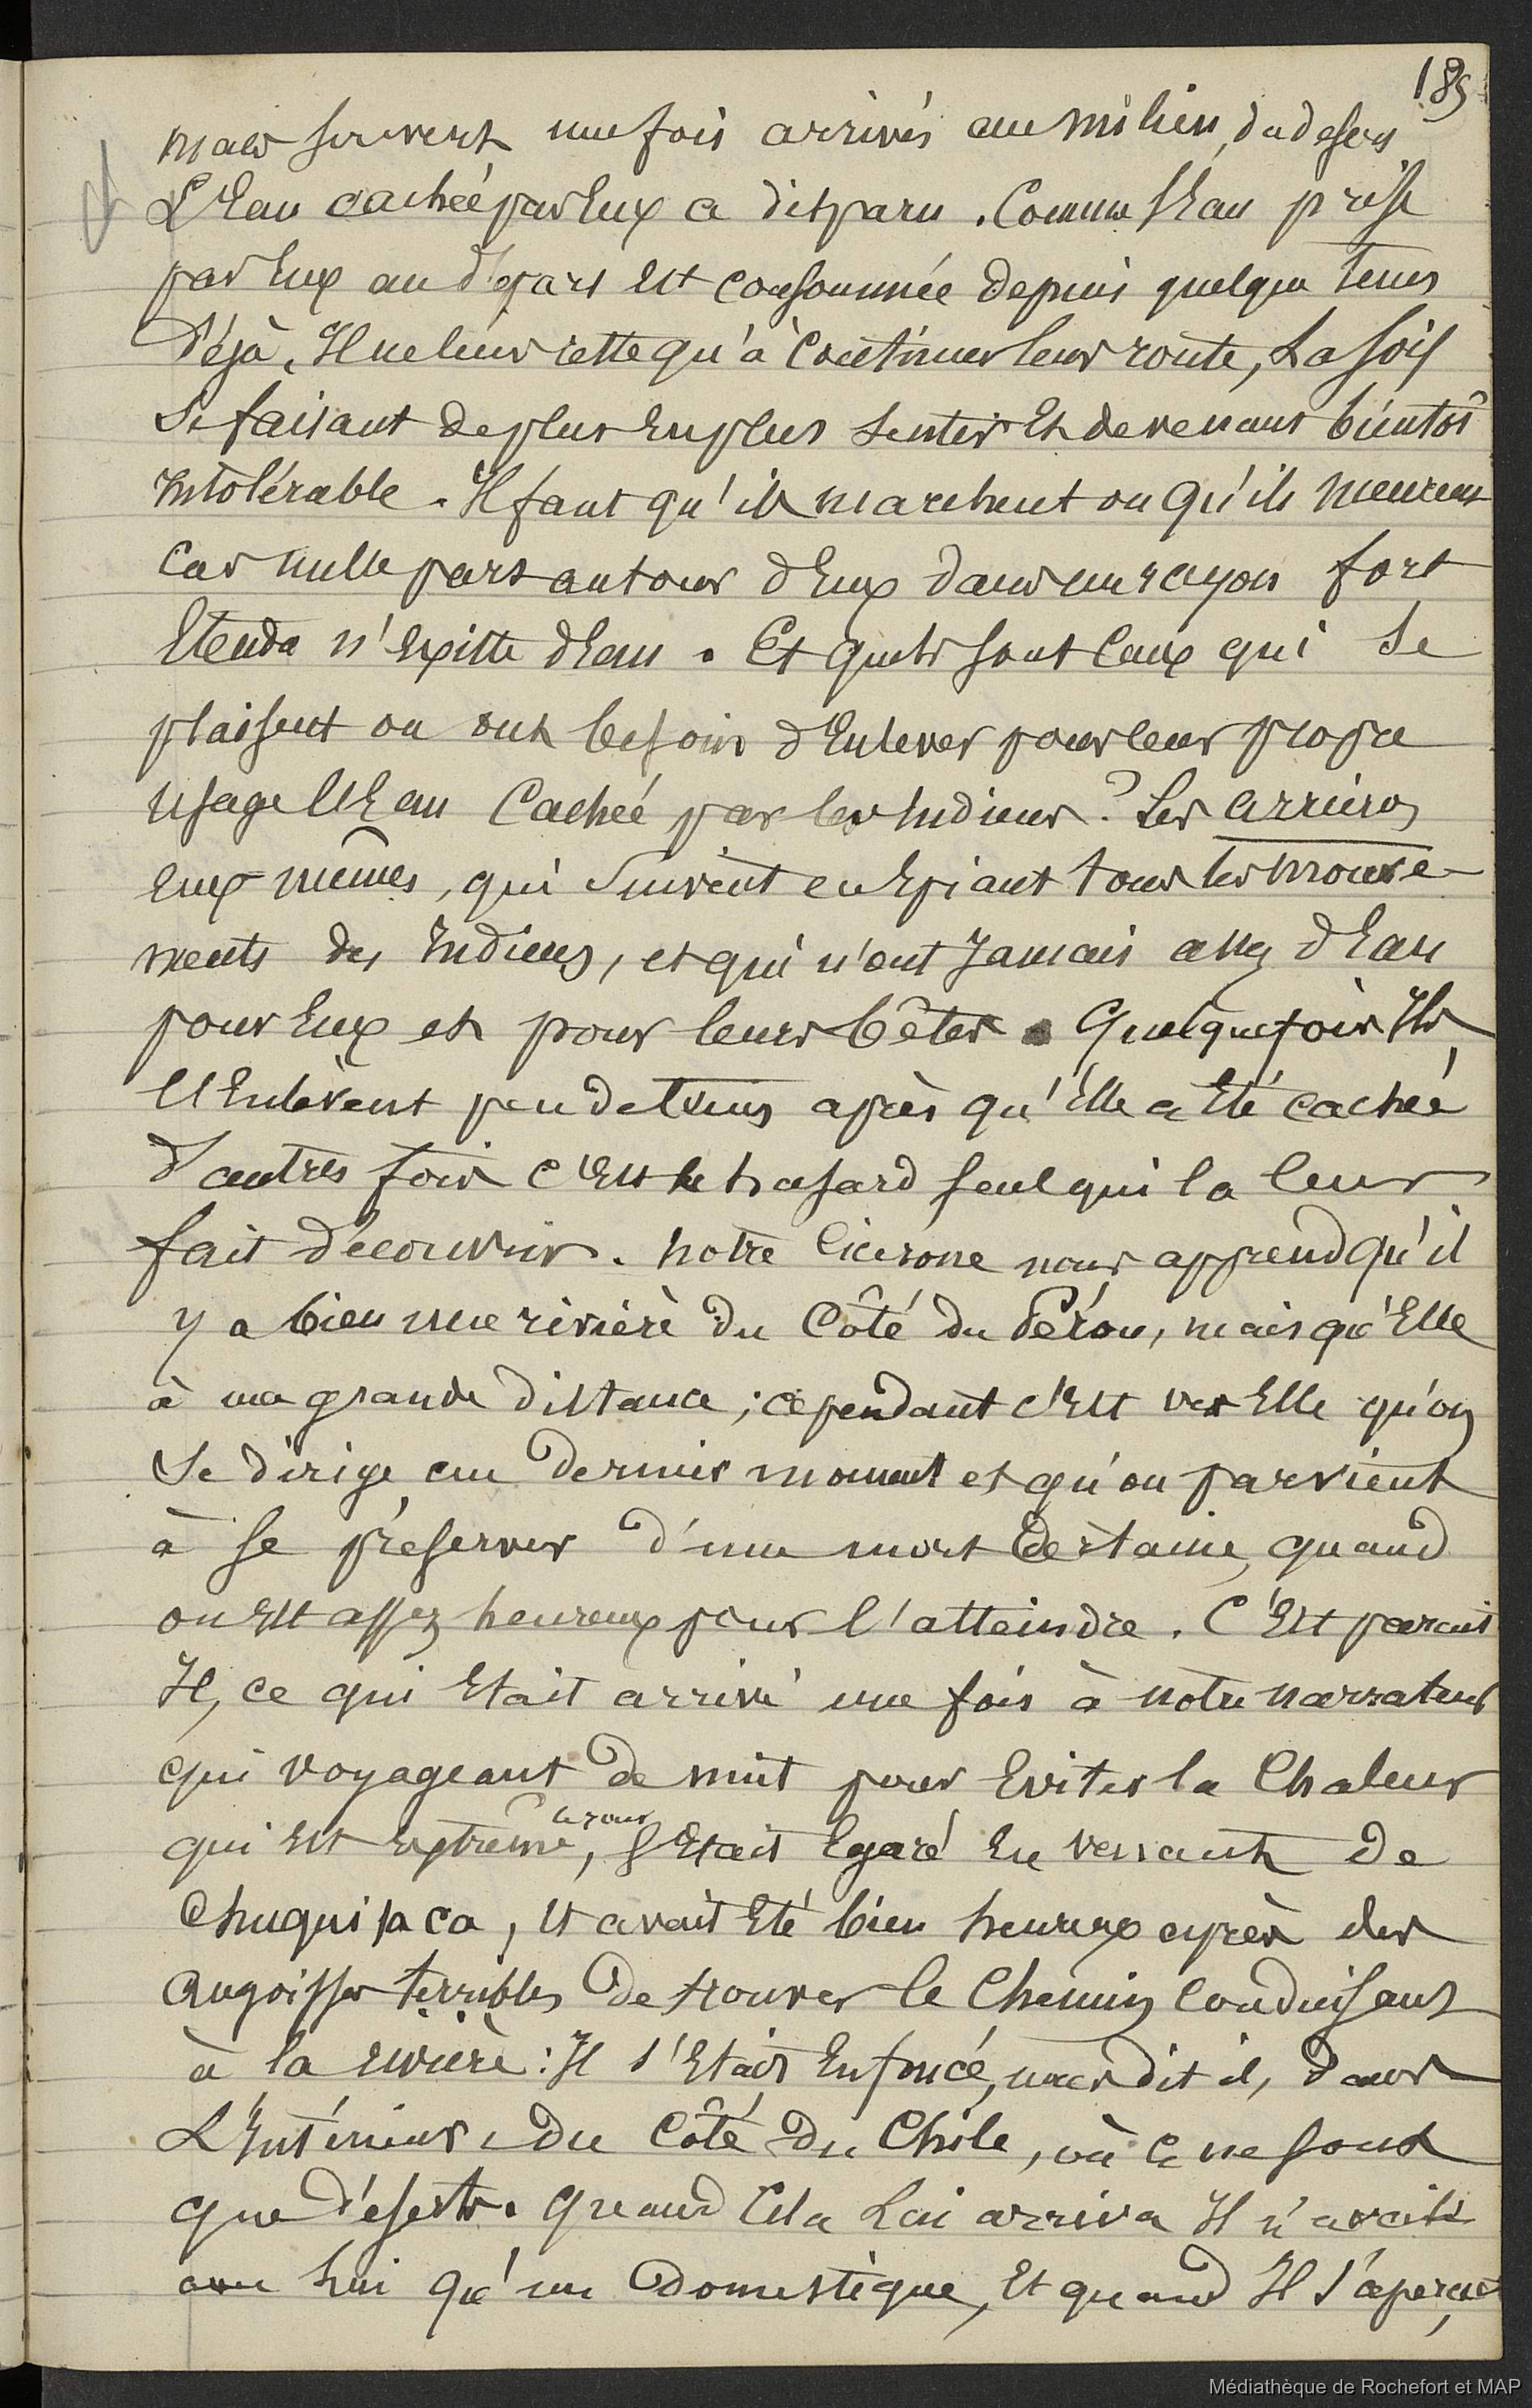 189
mais souvent une fois arrivés au milieu du desert
L'Eau cachée par Eux a disparu. Comme l'Eau prise
par Eux au départ est consommée depuis quelque tems
Déjà, Il ne leur reste qu'à continuer leur route, La soif
se faisant de plus en plus sentir Et devenant bientôt
intolérable. Il faut qu'ils marchent ou qu'ils meurent
Car nulle part autour d'Eux dans un rayon fort
Etendu n'existe d'Eau. Et quels sont Ceux qui se
plaisent ou ont besoin d'Enlever pour leur propre
usage l'Eau Cachée par les Indiens? Les arrieros
eux mêmes, qui suivent en Epiant tous les mouve-
ments des Indiens, et qui n'ont Jamais assez d'Eau
pour Eux et pour leurs bêtes. Quelquefois Ils
l'Enlèvent peu de tems après qu'Elle a Eté cachée
d'autres fois c'Est le hasard seul qui la leur
fait découvrir. notre Cicerone nous apprend qu'il
y a bien une rivière du Côté du Pérou, mais qu'Elle
à une grande distance; cependant c'Est vers Elle qu'on
Se dirige au dernier moment et qu'on parvient
à se préserver d'une mort Certaine, quand
on Est assez heureux pour l'atteindre. C'Est parait
Il, ce qui Etait arrivé une fois à notre narrateur
qui voyageant de nuit pour Eviter la Chaleur
qui Est Extrême, le jour s'Etait Egaré En venant de
Chuquisaca, Et avait Eté bien heureux après des
angoisses terribles De trouver le Chemin Conduisant
à la rivière: Il s'Etait Enfoncé, nous dit il, dans
L'Intérieur du Côté du Chile, où ce ne sont
que déserts. Quand Cela Lui arriva Il n'avait
avec lui qu'un Domestique, Et quand Il s'aperçut
Médiathèque de Rochefort et MAP